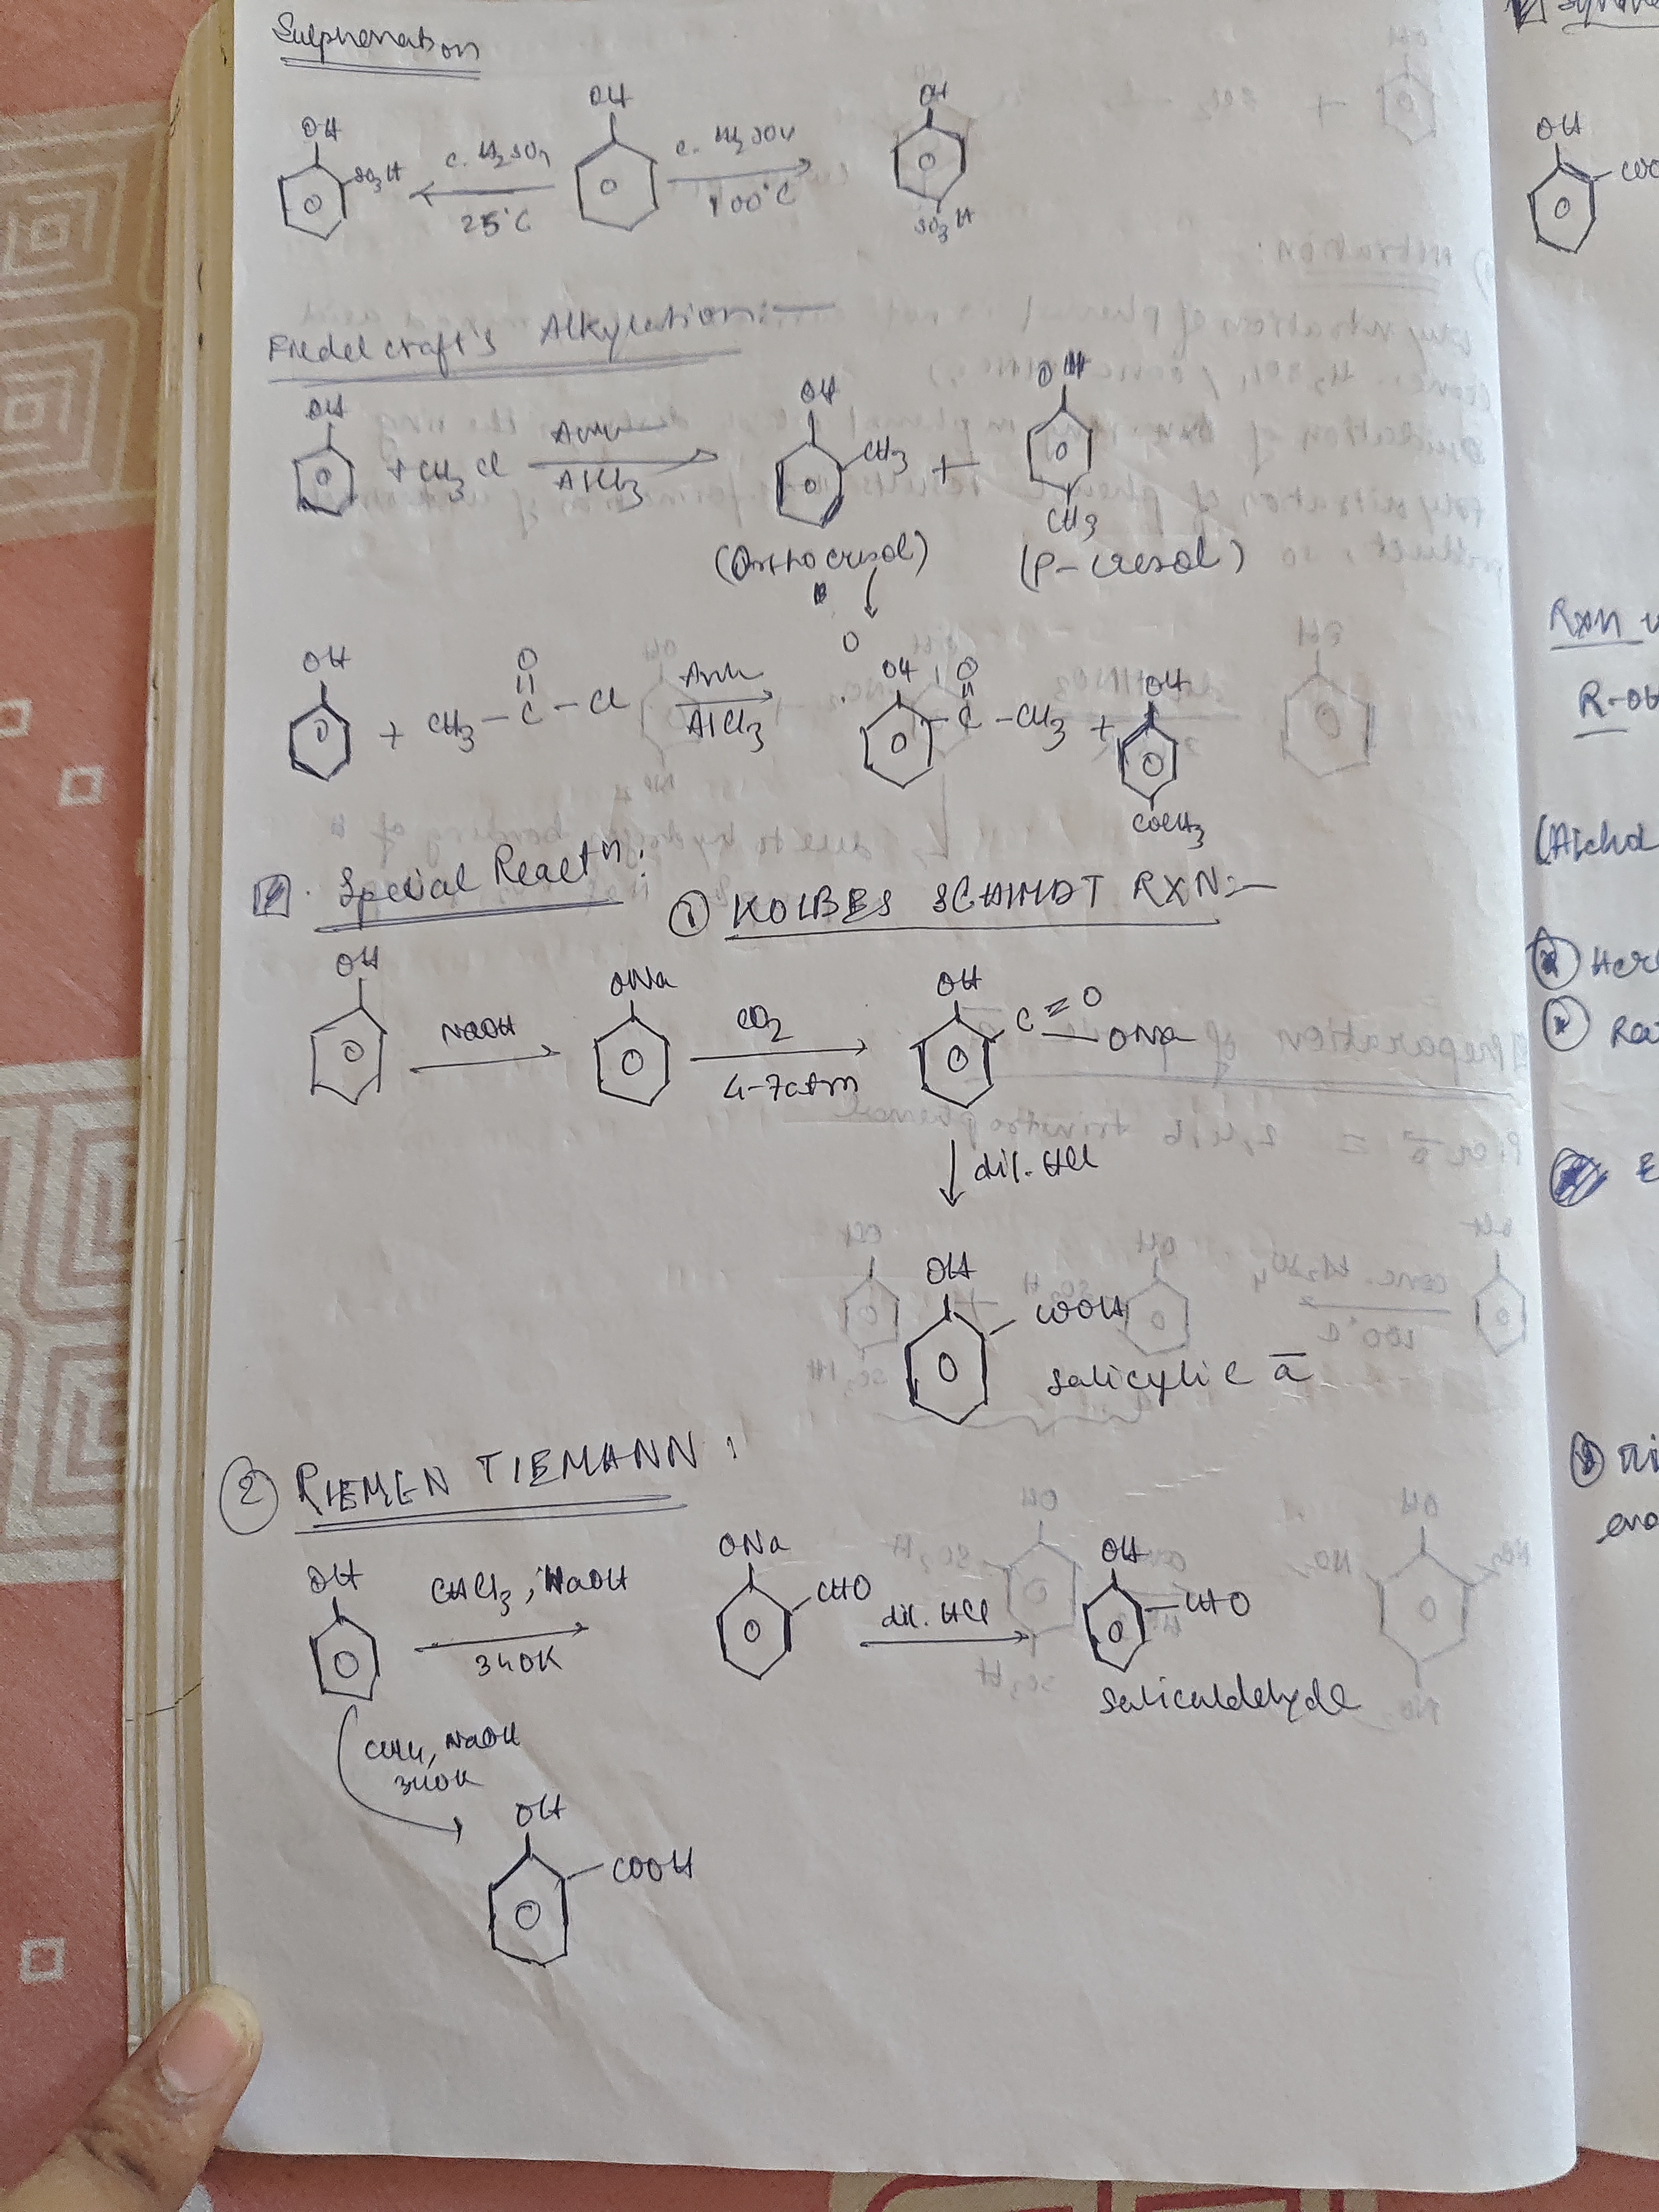 Sulphonation
OH
SO3H
c. H2SO4
25°C
OH
c. H2SO4
100°C
OH
SO3H
Friedel craft's Alkylation:—
OH
+ CH3Cl
AlCl3
OH
CH3
+
OH
CH3
(Orthocresol)
(P-cresol)
O
OH
+ CH3 - C - Cl
O
Anh
AlCl3
OH
O
C - CH3 +
OH
COCH3
Special Reactn:
① KOLBES SCHMIDT RXN:—
OH
NaOH
ONa
CO2
4-7atm
OH
C = O
ONa
dil. HCl
OH
COOH
salicylic a̅
② RIEMEN TIEMANN:
OH
CHCl3, NaOH
340K
ONa
CHO
dil. HCl
OH
CHO
Salicaldehyde
CCl4, NaOH
340K
OH
COOH
OH
Rxn
R-OH
(Alcohol